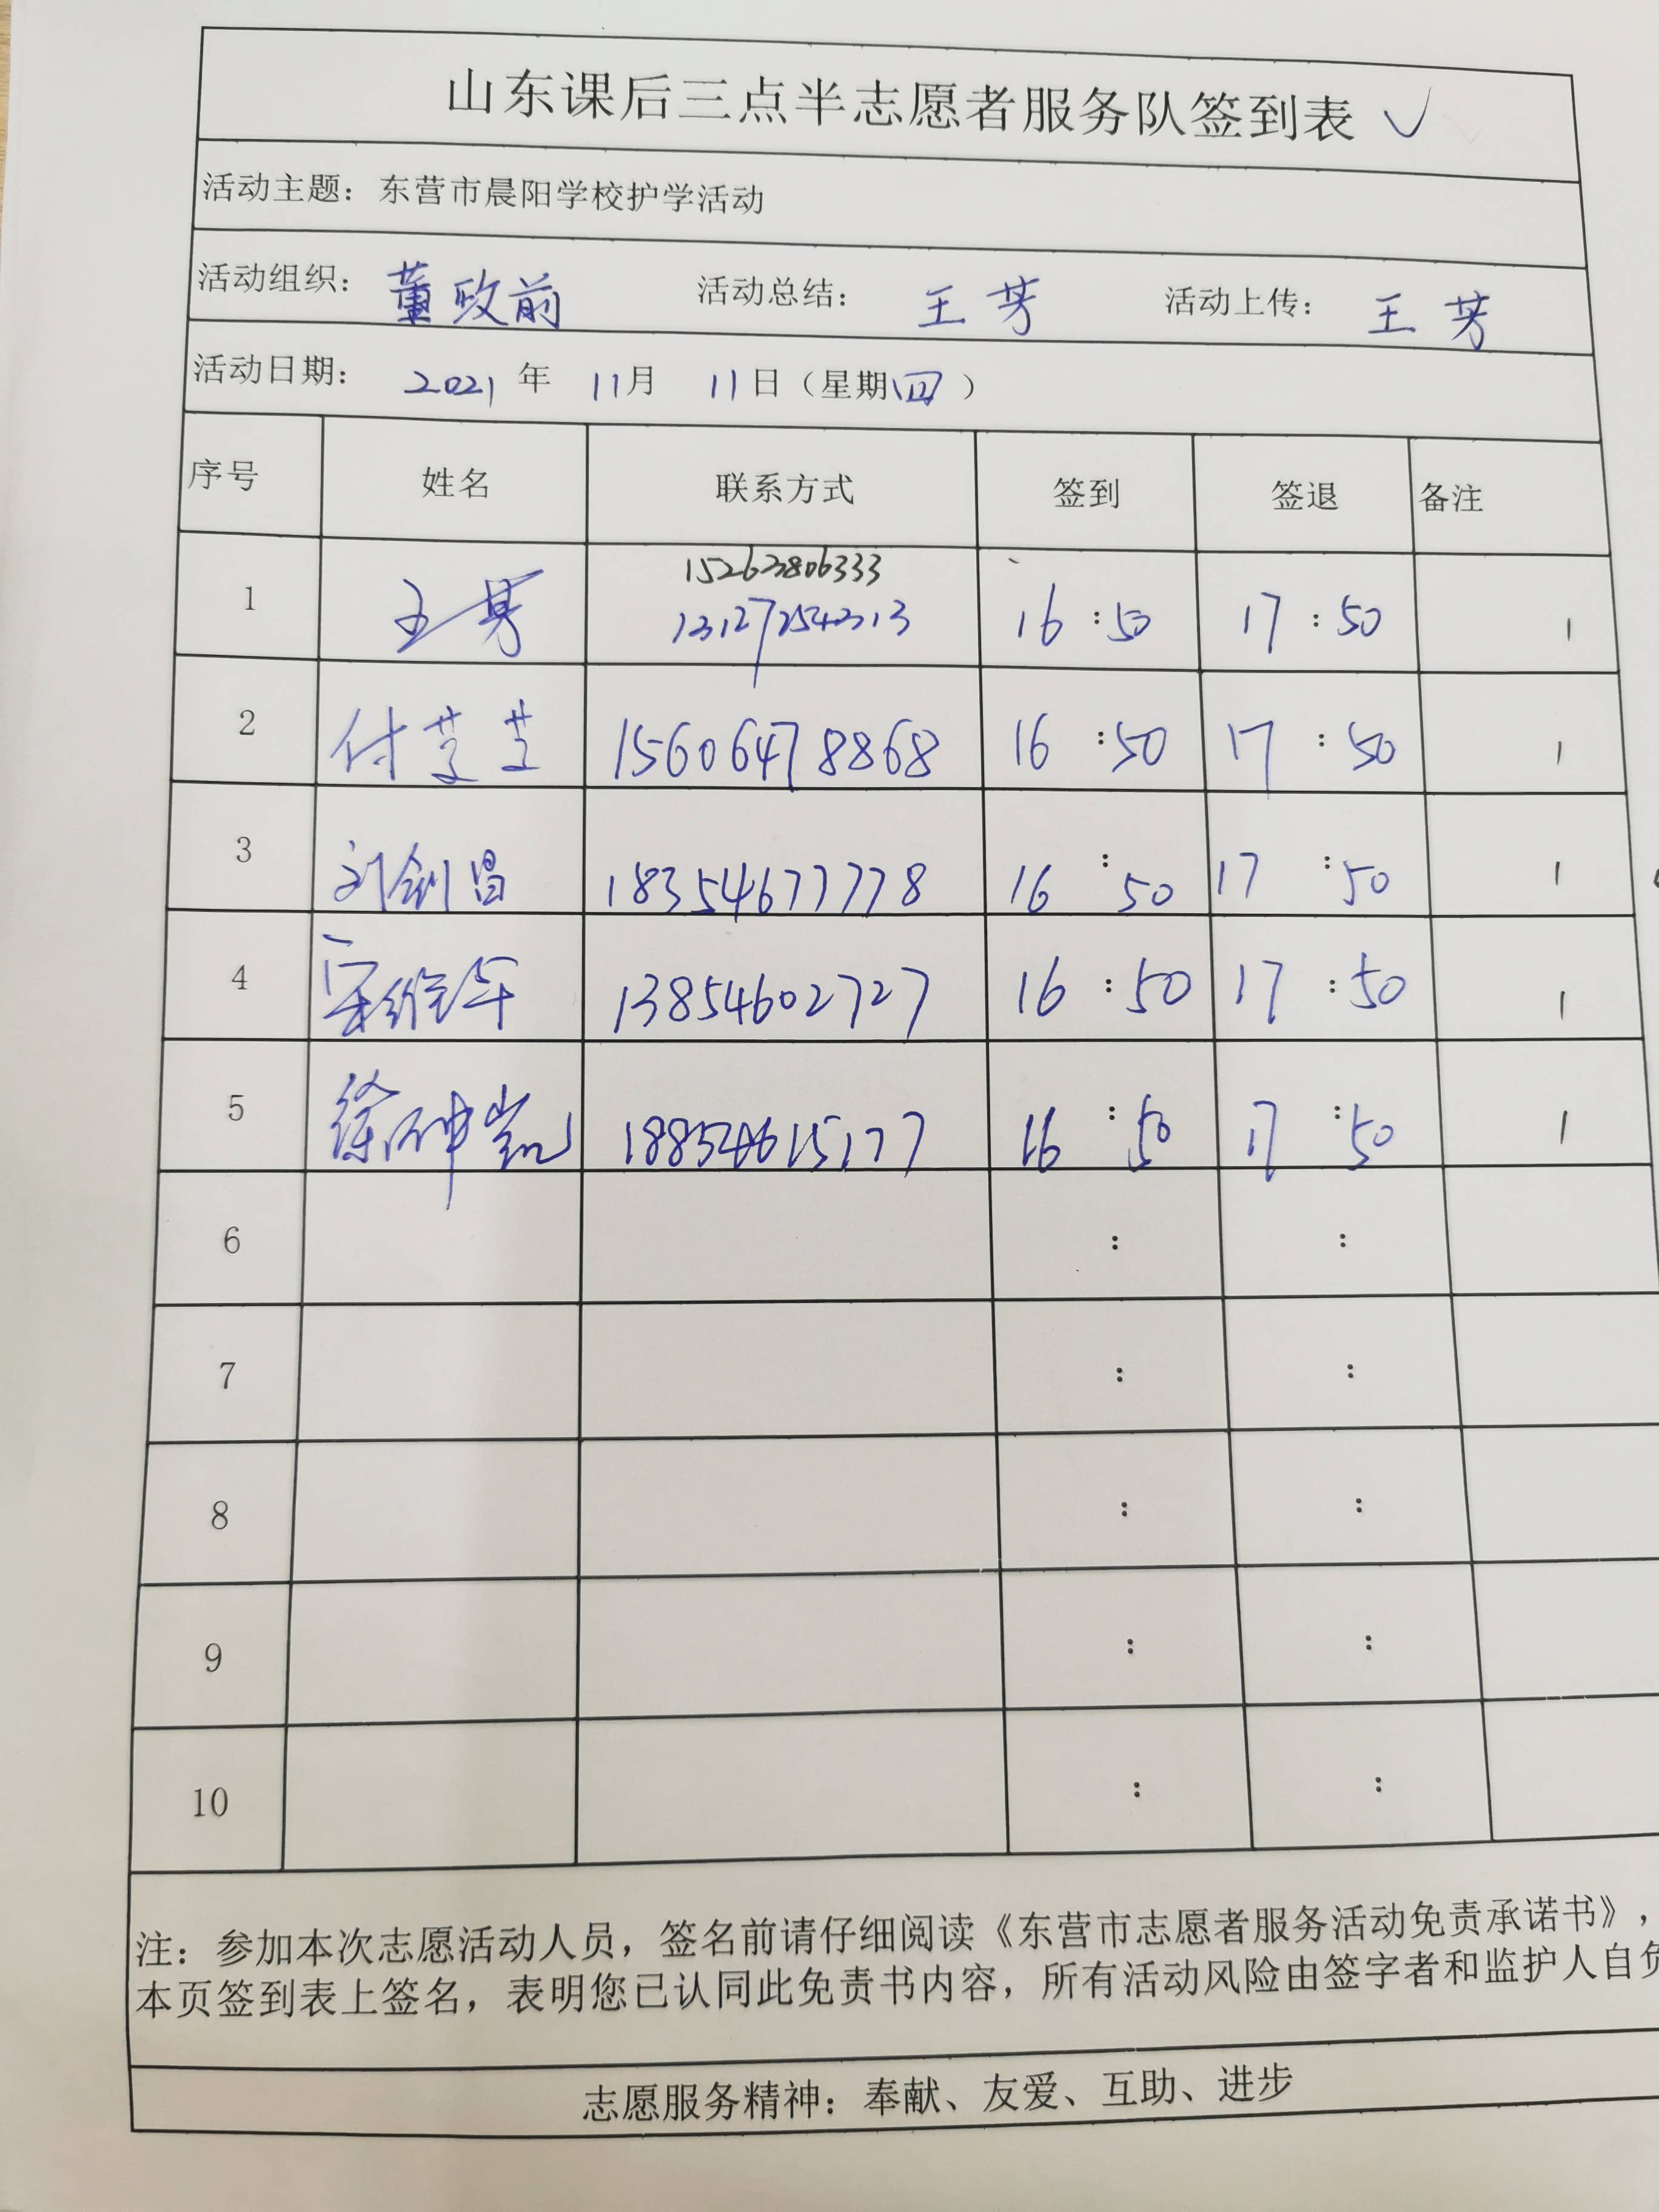 山东课后三点半志愿者服务队签到表 ✓
活动主题：东营市晨阳学校护学活动
活动组织：董政前 活动总结：王芳 活动上传：王芳
活动日期：2021年 11月 11日（星期四）
序号 姓名 联系方式 签到 签退 备注
15263806333
1 16:50 17:50 1
2 付芝芝 15606478868 16:50 17:50 1
3 刘剑昌 18354677778 16:50 17:50 1
4 13854602727 16:50 17:50 1
5 徐 凯 18854615177 16:50 17:50 1
6 : :
7 : :
8 : :
9 : :
10 : :
注：参加本次志愿活动人员，签名前请仔细阅读《东营市志愿者服务活动免责承诺书》，
本页签到表上签名，表明您已认同此免责书内容，所有活动风险由签字者和监护人自负
志愿服务精神：奉献、友爱、互助、进步